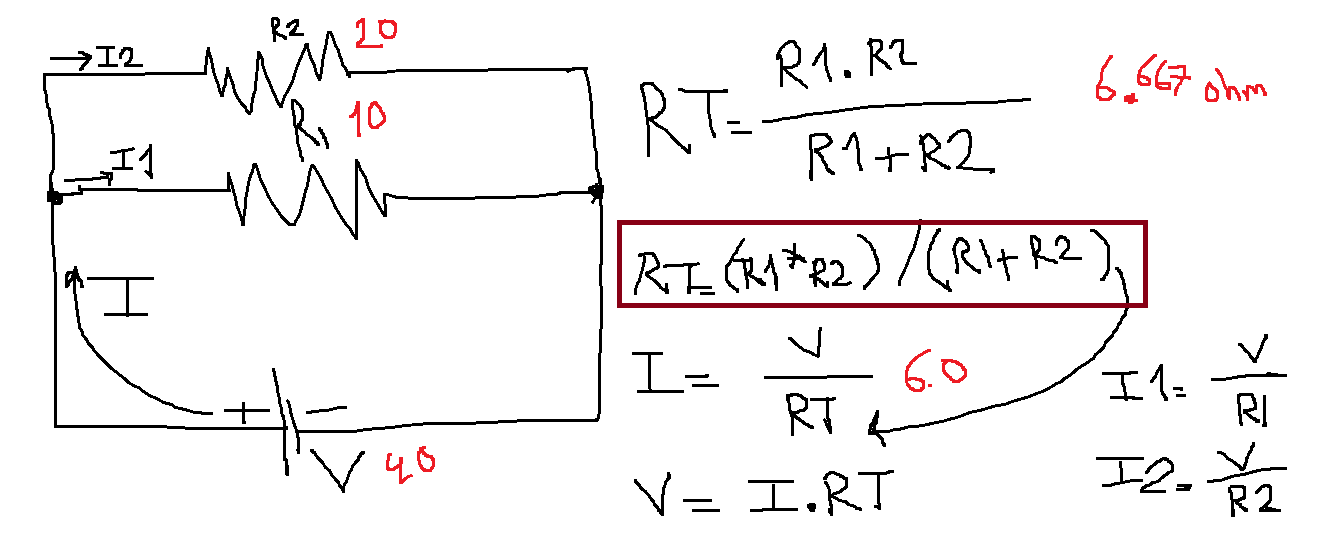 R2 20
I2
R1 10
I1
I
+ -
V 40
RT = R1.R2 / R1+R2
6.667 ohm
RT=(R1*R2)/(R1+R2)
I = V / RT
6.0
V = I.RT
I1= V / R1
I2= V / R2